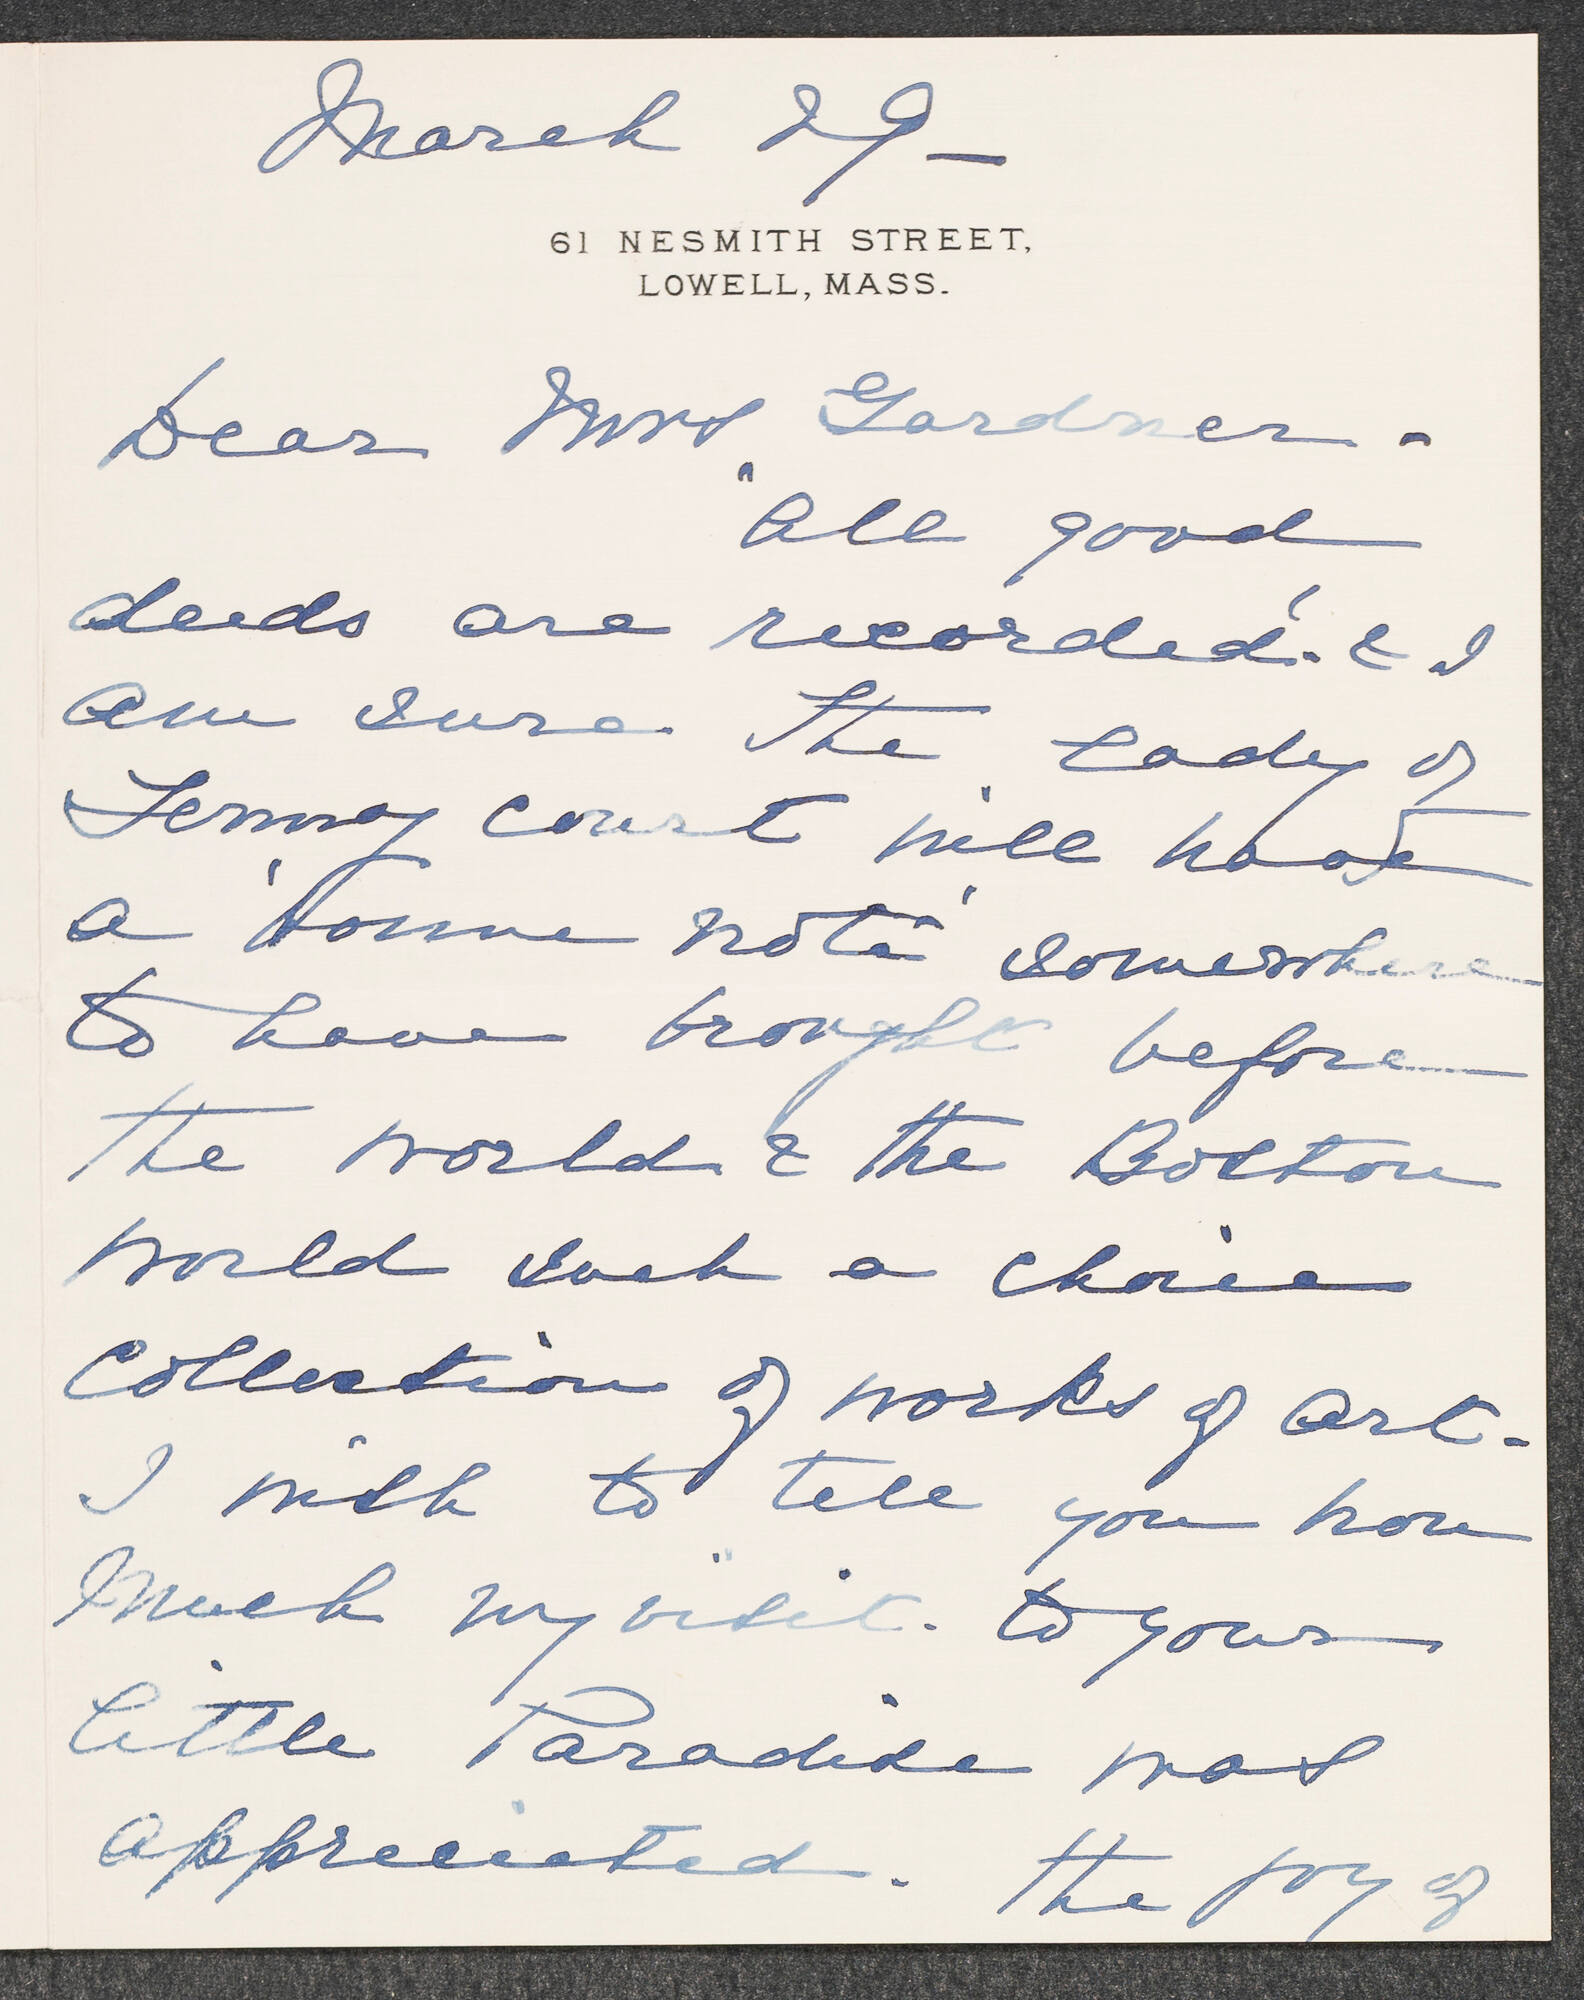 March 29-
61 NESMITH STREET,
LOWELL, MASS.
Dear Mrs Gardner -
"All good
deeds are recorded". & I
am sure the Lady of
Fenway Court will have
a "bonne note" somewhere
to have brought before
the world & the Boston
world such a choice
collection of works of art -
I wish to tell you how
much my visit . to your
little Paradise was
appreciated . The joy of